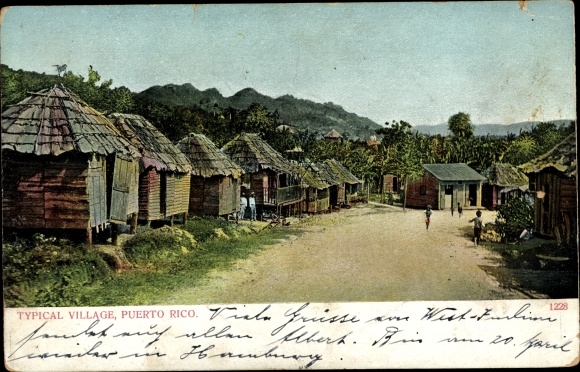 TYPICAL VILLAGE, PUERTO RICO. 1228
Viele Grüsse von West-Indien
sendet euch allen Albert. Bin am 20 April
wieder in Hamburg